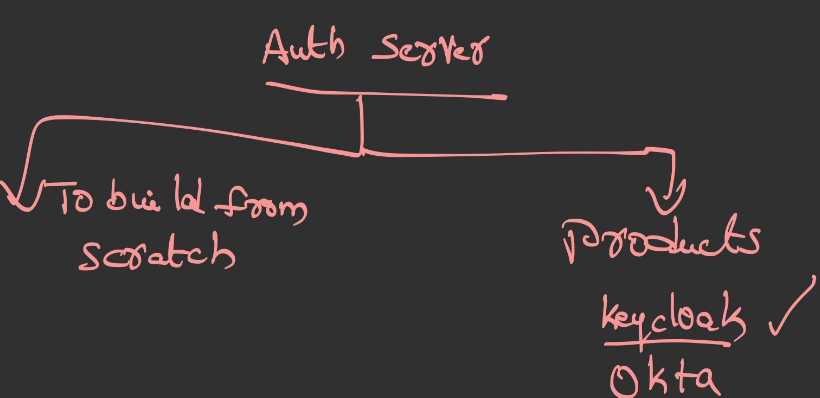 Auth Server
To build from
scratch
Products
Keycloak
Okta